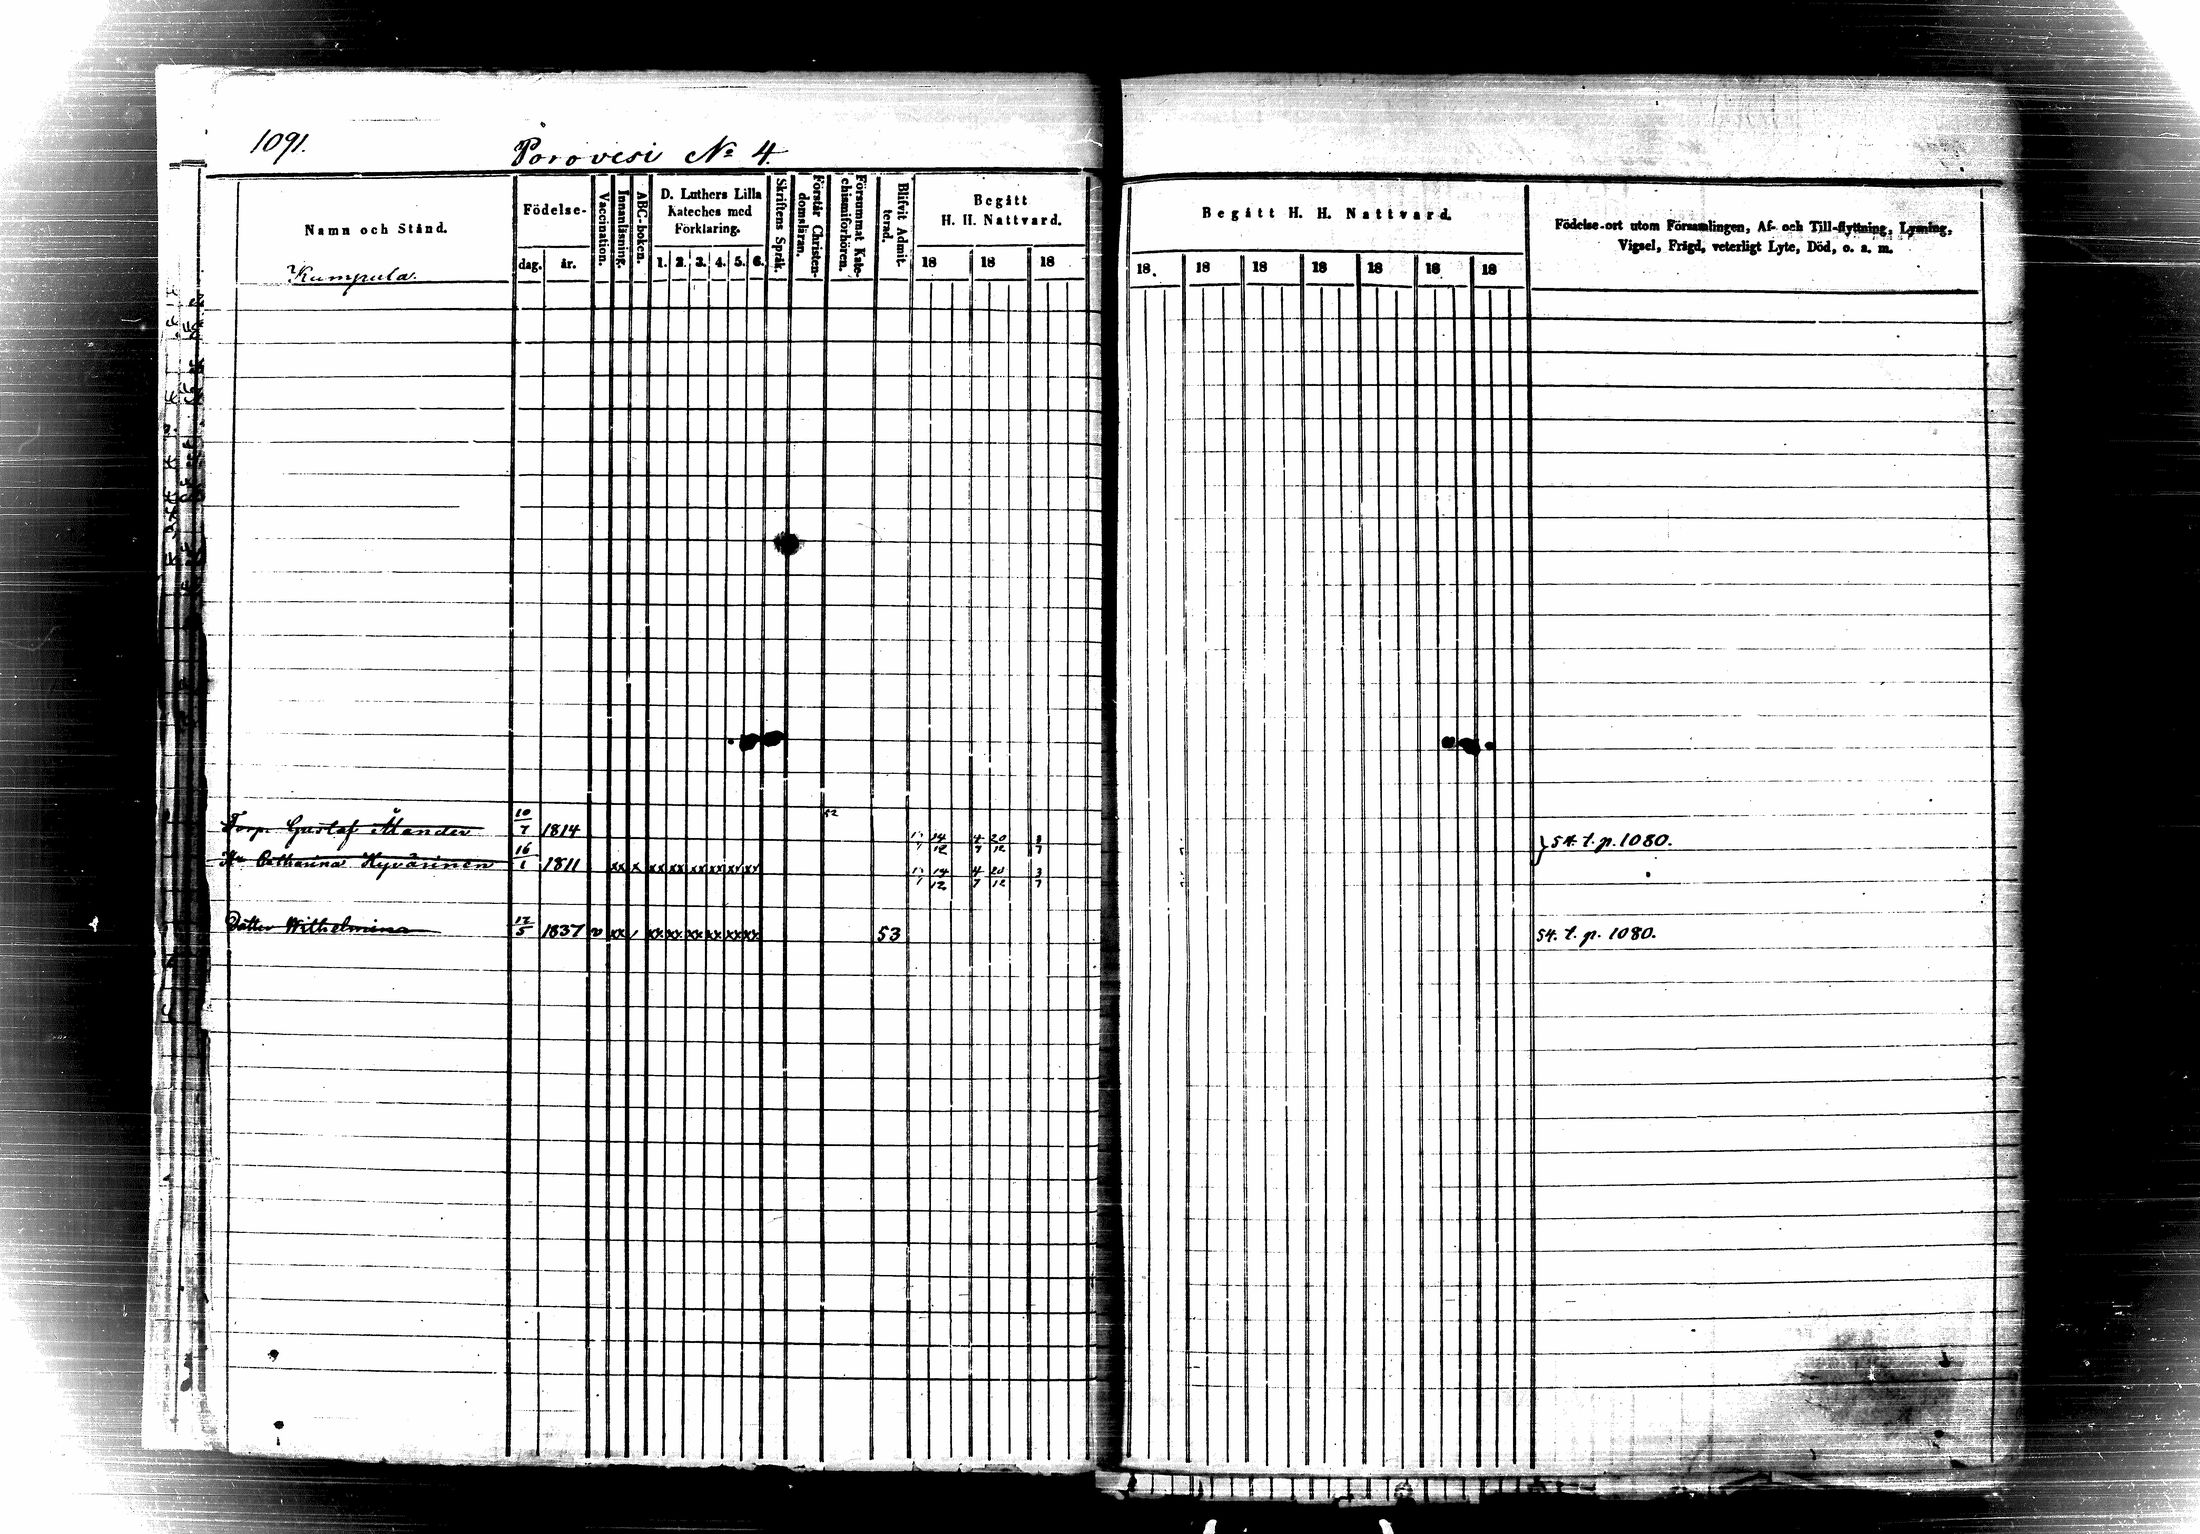 1091.
Porovesi No 4.
Namn och Stånd.
Kumpula.
Födelse-
dag. år.
Vaccination.
Innanläsning.
ABC-boken.
D. Luthers Lilla
Kateches med
Förklaring.
1. 2. 3. 4. 5. 6.
Skriftens Språk.
Förstår Christen-
domsläran.
Försummat Kate-
chismiförhören.
Blifvit Admit-
terad.
Begått
H. H. Nattvard.
18 18 18
Begått H. H. Nattvard.
18. 18 18 18 18 18 18
Födelse-ort utom Församlingen, Af- och Till-flyttning, Lysning,
Vigsel, Frägd, veterligt Lyte, Död, o. s. m.
Torp. Gustaf Mander 10/7 1814 52 14/12 4/7 20/12 54. t. p. 1080.
Hu Catharina Hyvärinen 16/1 1811 xx x xx xx xx xx xx xx 14/12 4/7 20/12 3/7
Dotter Wilhelmina 17/5 1837 v xx / xx xx xx xx xx xx 53 54. t. p. 1080.